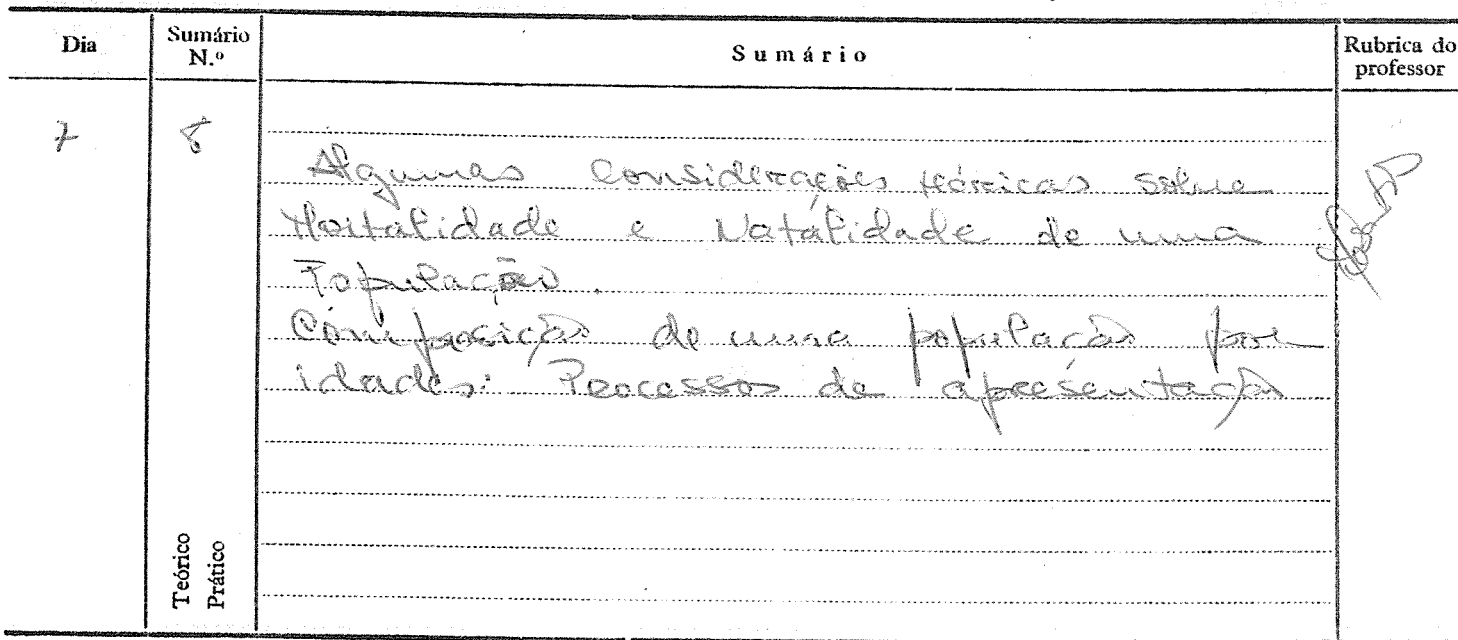 Dia
Sumário
N.º
Sumário
Rubrica do
professor
7
8
Algumas considerações teóricas sobre
Mortalidade e Natalidade de uma
População.
Composição de uma população por
idades: Processos de apresentação
Teórico
Prático